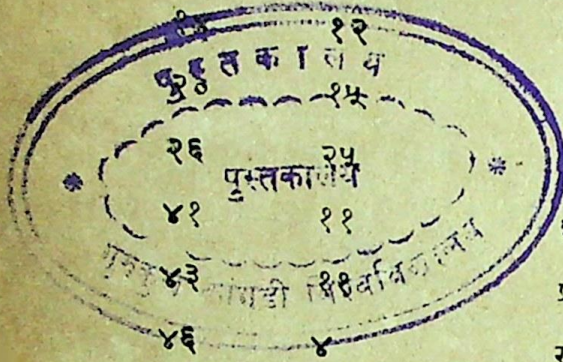 १२
पुस्तकालय
३० १५
२६ २५
पुस्तकालय
४१ ११
गुरुकुल कांगडी विश्वविद्यालय
४३ ११
४६ ४